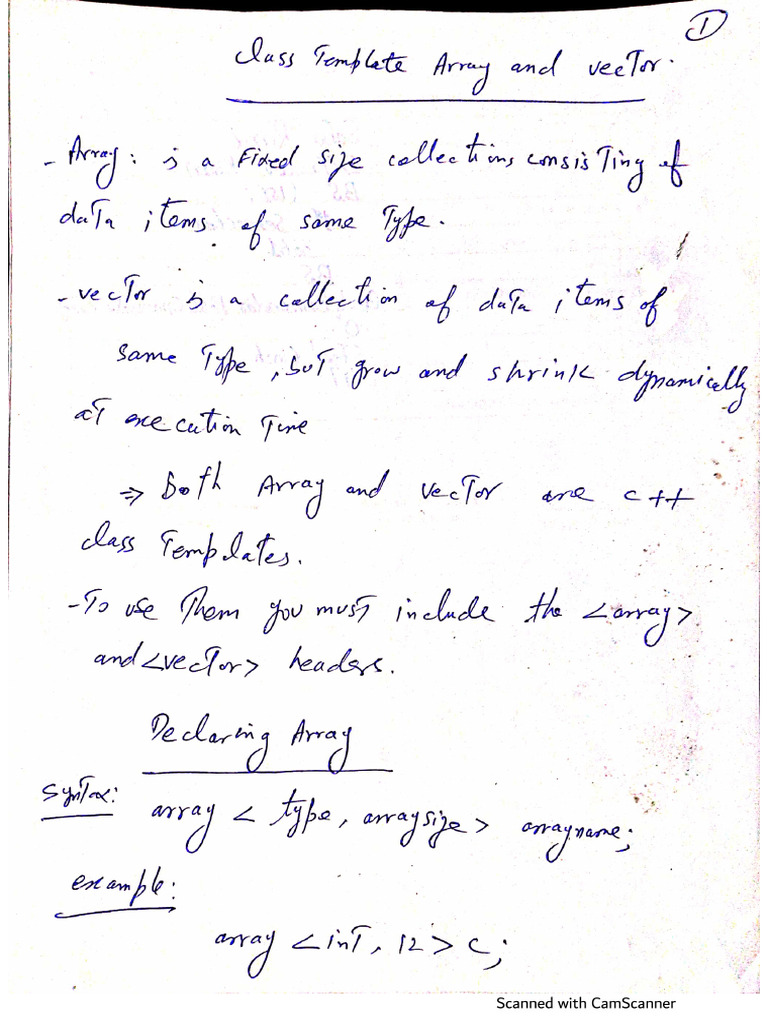 1
Class Template Array and vector.
- Array: is a Fixed size collections consisting of
data items of same Type.
- vector is a collection of data items of
same Type, but grow and shrink dynamically
at execution Time
⇒ Both Array and vector are c++
class Templates.
- To use Them you must include the <array>
and <vector> headers.
Declaring Array
Syntax: array < type, arraysize > arrayname;
example:
array <int, 12> c;
Scanned with CamScanner